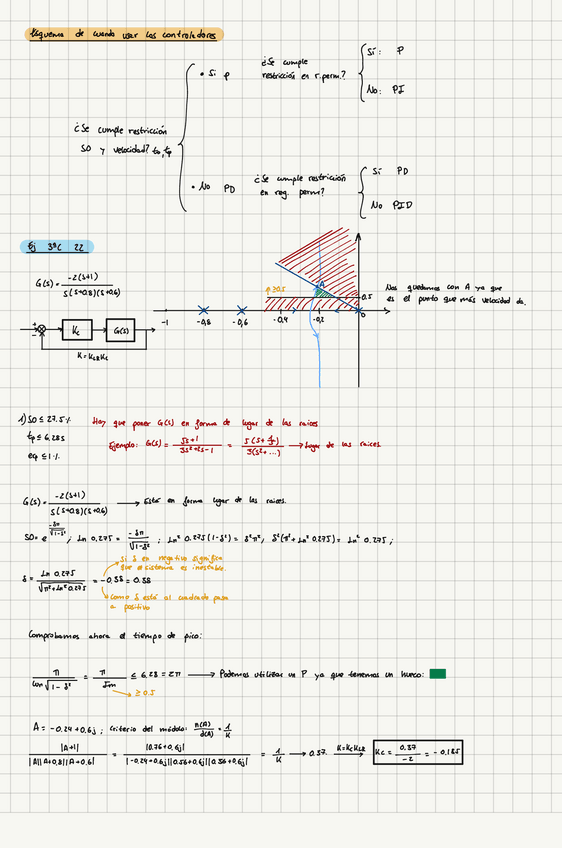 Esquema de cuando usar los controladores
¿Se cumple restricción
SO y velocidad? to, tp
• Si P
¿Se cumple
restricción en r.perm.?
Sí: P
No: PI
• No PD
¿Se cumple restricción
en reg. perm?
Sí PD
No PID
Ej 3ºC 22
G(s) = -2(s+1)
s(s+0.8)(s+0.6)
+
-
Kc
G(s)
K = KLR Kc
≥0.5
A
0.5
-1
-0,8
-0,6
-0,4
-0,2
0
Nos quedamos con A ya que
es el punto que más velocidad da.
1) SO ≤ 27.5%
tp ≤ 6.28s
ep ≤ 1%
Hay que poner G(s) en forma de lugar de las raíces
Ejemplo: G(s) = 5s+1 / 3s²+2s-1 = 5(s+1/5) / 3(s²+...) → Lugar de las raíces.
G(s) = -2(s+1) / s(s+0.8)(s+0.6) → Está en forma lugar de las raíces.
SO = e^(-δπ/√1-δ²) ; Ln 0.275 = -δπ / √1-δ² ; Ln² 0.275 (1-δ²) = δ²π², δ²(π²+Ln² 0.275) = Ln² 0.275 ;
Si δ en negativo significa
que el sistema es inestable.
δ = Ln 0.275 / √π²+Ln² 0.275 = -0,38 = 0.38
como δ está al cuadrado pasa
a positivo
Comprobamos ahora el tiempo de pico:
π / ωn √1-δ² = π / Im ≤ 6.28 = 2π → Podemos utilizar un P ya que tenemos un hueco:
≥ 0.5
A = -0.24 + 0.6j ; criterio del módulo: n(A) / d(A) = 1 / K
|A+1| / |A||A+0.8||A+0.6| = |0.76+0.6j| / |-0.24+0.6j||0.56+0.6j||0.36+0.6j| = 1 / K → 0.37 K=Kc KLR → Kc = 0.37 / -2 = -0.185